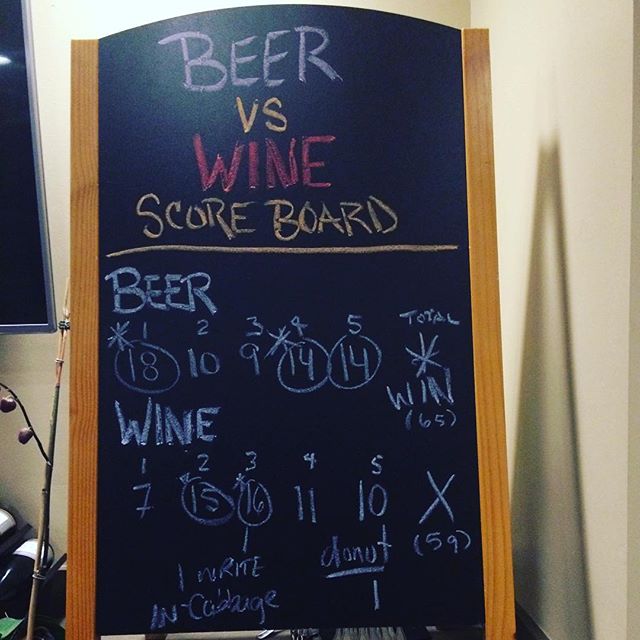 BEER
VS
WINE
SCORE BOARD
BEER
1 2 3 4 5 TOTAL
* 18 10 9 * 14 14 *
WIN
(65)
WINE
1 2 3 4 5
7 * 15 * 16 11 10 X
(59)
1 WRITE
IN-Cabbage
donut
1